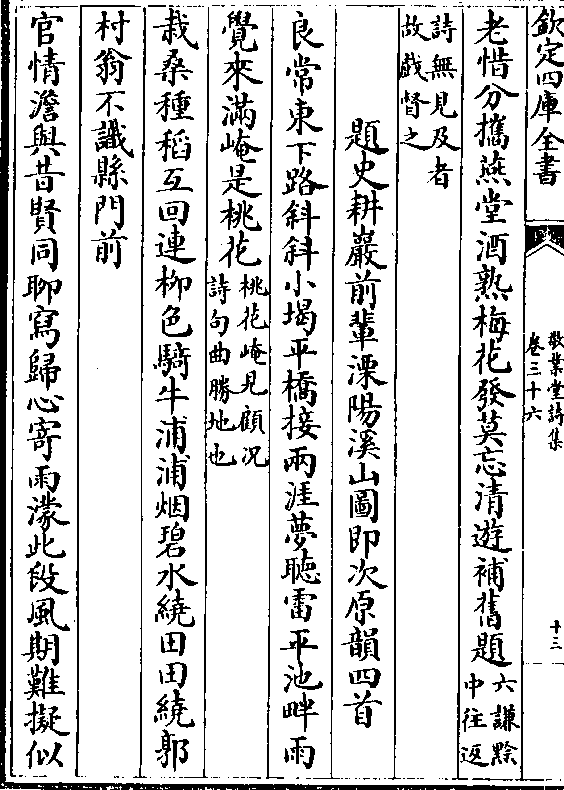 欽定四庫全書
敬業堂詩集
卷三十六
十三
老惜分攜燕堂酒熟梅花發莫忘清遊補舊題六謙黟
中往返
詩無見及者
故戲督之
題史耕巖前輩溧陽溪山圖即次原韻四首
良常東下路斜斜小堨平橋接兩涯夢聽雷平池畔雨
覺來滿崦是桃花桃花崦見顧況
詩句曲勝地也
栽桑種稻互回連柳色騎牛浦浦烟碧水繞田田繞郭
村翁不識縣門前
官情澹與昔賢同聊寫歸心寄雨濛此段風期難擬似